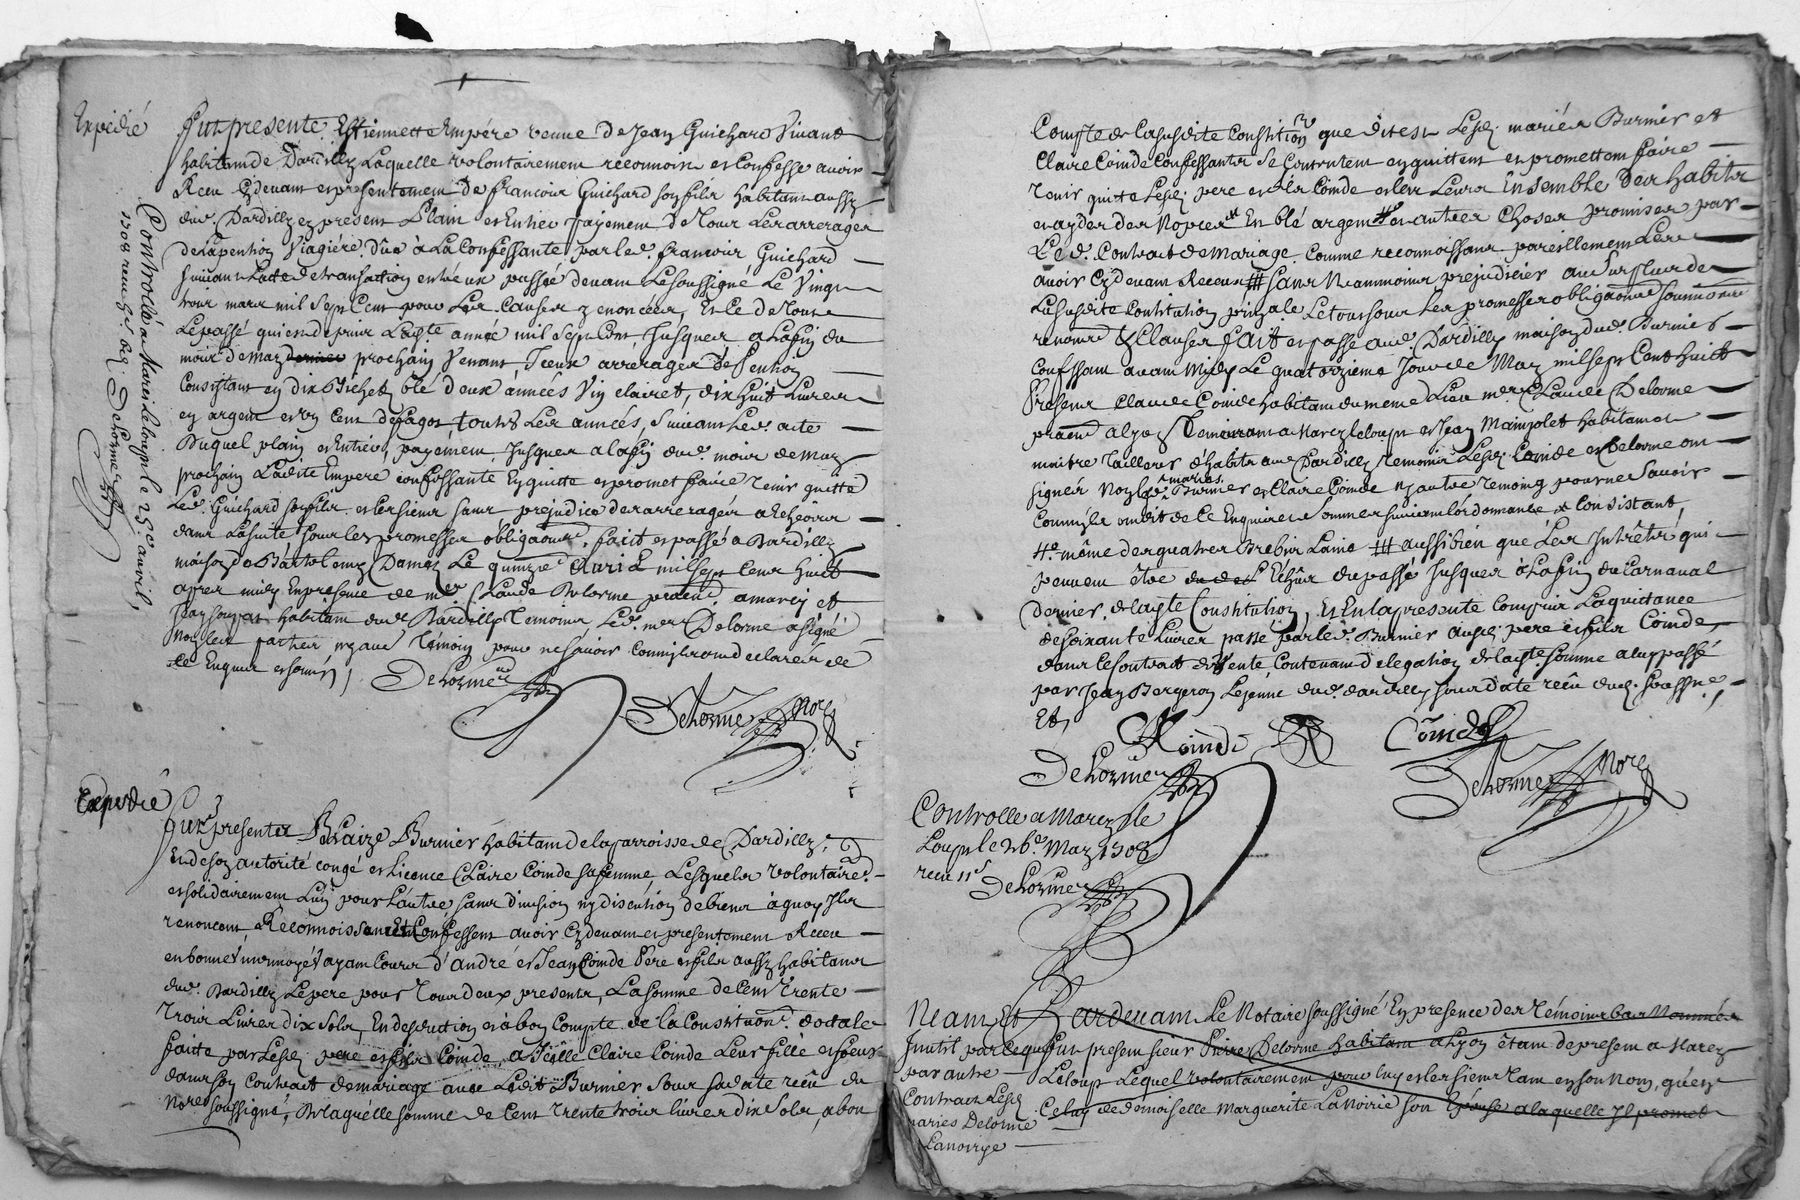 Expedié
Fut presente Estiennette Empére veuve de Jean Guichard Vivant
habitante Dardilly Laquelle volontairement reconnoist et confesse avoir
Receu cydevant et presentement de francois Guichard son fils habitant aussy
dud. Dardilly cy present Plain et Entier payement de Tous Les arrerages
de la pention viagére dûe à La Confessante par led. francois Guichard
suivant Lacte de transaction entr'eux passée devant Le soussigné Le vingt
trois mars mil sept Cent pour Les Causes y enoncées, Et ce de Tout
Le passé qui est depuis Lad. année mil sept Cent, Jusques a La fin du
mois de May dernier prochain venant, Iceux arrerages de Pention
Consistant en dix Bichets blé deux années Vin clairet, dix huit Livres
en argent et un Cent de fagots touts Les années, Suivant Led. acte
Duquel plain et Entier payement Jusques a La fin dud. mois de May
prochain Ladite Empere confessante En quitte et promet faire Tenir quitte
Led. Guichard son fils et les siens sans prejudice des arrerages a Echeoir
dans La suite sous les promesses obligaons. fait et passé a Dardilly
maison de Barthelemy Damez Le quinzie. Avril mil sept Cent huict
apres midy En presence de me. Claude Delorme praticn. a marcy et
Jean habitant dud. Dardilly Temoins Led. me. Delorme a signé
Non Les parties ny autre Témoin pour ne sçavoir Comm'ils ont declaré de
ce Enquis et sommés
Delorme
Delorme Nore.
Controllé a Marci Leloup le 25e. avril
1708 receu
Delorme
Expedié
Furt. presents Blaize Burnier habitant de la parroisse de Dardilly, Et
En de son autorité congé et Licence Claire Coinde sa femme, Lesquels volontaire.
et solidairement L'un pour L'autre sans division ny discution de biens à quoy Ils
renoncent, Reconnoissent Et Confessent avoir cy devant et presentement Receu
en bonnes monnoyes ayant Cours d'andre et Jean Coinde Pere et fils aussy habitants
dud. Dardilly Le pere pour Tous deux present, La somme de Cent Trente
Trois Livres dix Sols, En deduction et à bon Compte de la Constitution dotale
faitte par Lesd. pere et fils Coinde, a Icelle Claire Coinde Leur fille et soeur
dans son Contract de mariage avec Ledit Burnier sous sa datte reçû du
Nore. soussigné, De laquelle somme de Cent trente trois livres dix sols, a bon
Compte de La susdite Constition que dit est Lesd. mariés Burnier et
Claire Coinde Confessants se Contentent en quittent et promettent faire
Tenir quitte Lesd. pere et fils Coinde et Leurs Ensemble des habits
et aydes des Nopces En blé argent et autres choses promises par
Led. Contract de Mariage Comme reconnoissant pareillement Les
avoir cy devant Receus sans Neanmoins prejudicier au surplus de
La susdite Contitution prinpale Le tout sous Les promesses obligaons soumions
renons & Clauses fait et passé aud. Dardilly maison dud. Burnier
Confessant avant Midy Le quatorzieme Jour de May mil sept Cent huict
Present Claude Coinde habitant du meme Lieu me. Claude Delorme
praticn. a Lyon demeurant a Marcy leloup et Jean Mainjolet habitant et
maitre Tailleur d'habits aud. Dardilly Temoins Lesd. Coinde et Delorme ont
signés Non Led. maries Burnier et Claire Coinde ny autre Temoing pour ne Sçavoir
Comm'ils ont dit de ce Enquis et Sommés suivant L'ordonnance Consistant,
même des quatres Brebis Laine aussi bien que Les Intrêts qui
peuvent être Echûs du passé Jusques à La fin du Carnaval
dernier de ladte Constitution, Et En la presente Compris La quittance
de soixante Livres passé par led. Burnier ausd. pere et fils Coinde
dans le Contract de vente Contenant delegation de ladte. somme a luy passé
par Jean Bergeron Lejeune dud. dardilly sous datte reçû dud. soussigné
Et
Coinde
Coinde
Delorme
Delorme Nore.
Controlle a Marcy le
Loup le 26e. May 1708
receu 11s
Delorme
Neant Et
Inutil parce que
par autre
Contract Lesd.
maries Delorme
Lanoirye
Pardevant Le Notaire soussigné En presence des Témoins bas Nommés
fut present sieur Pierre Delorme habitant a Lyon étant de present a Marcy
Leloup Lequel volontairement pour luy et les siens Tant en son Nom, qu'en
Celuy de demoiselle Marguerite Lanoirie son Epouse a laquelle Il promet